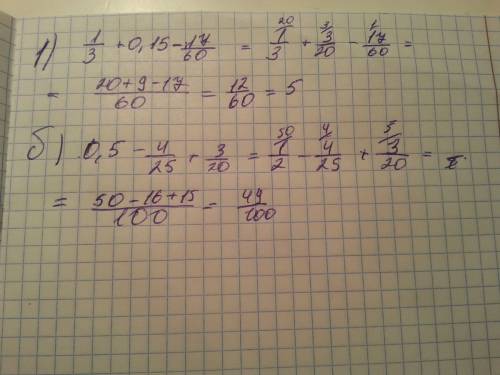 1) 1/3 + 0,15 - 17/60 = 20/ 1/3 + 3/ 3/20 - 1/ 17/60 =
= 20+9-17/60 = 12/60 = 5
б) 0,5 - 4/25 + 3/20 = 50/ 1/2 - 4/ 4/25 + 5/ 3/20 =
= 50-16+15/100 = 49/100